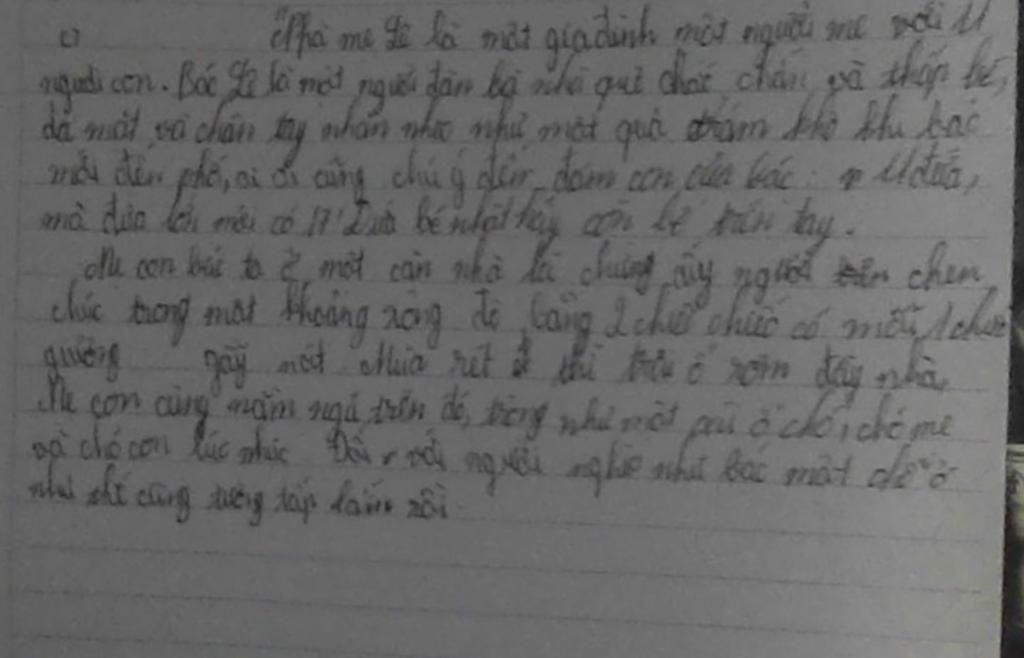 c) "Nhà mẹ Lê là một gia đình một người mẹ với 11
người con. Bác Lê là một người đàn bà nhà quê chắc chắn và thấp bé,
da mặt và chân tay nhăn nheo như một quả trám khô khi bác
mới đến phố, ai ai cũng chú ý đến đám con của bác: 11 đứa,
mà đứa lớn mới có 17! Đứa bé nhất hãy còn bế trên tay.
Mẹ con bác ta ở một căn nhà lá chừng ấy người chen
chúc trong một khoảng rộng độ bằng 2 chiếc chiếu có mỗi 1 chiếc
giường gãy nát Mùa rét thì trải ổ rơm đầy nhà,
Mẹ con cùng nằm ngủ trên đó, trông như một cái ổ chó, chó mẹ
và chó con lúc nhúc Đối với người nghèo như bác một chỗ ở
như thế cũng tươm tất lắm rồi.